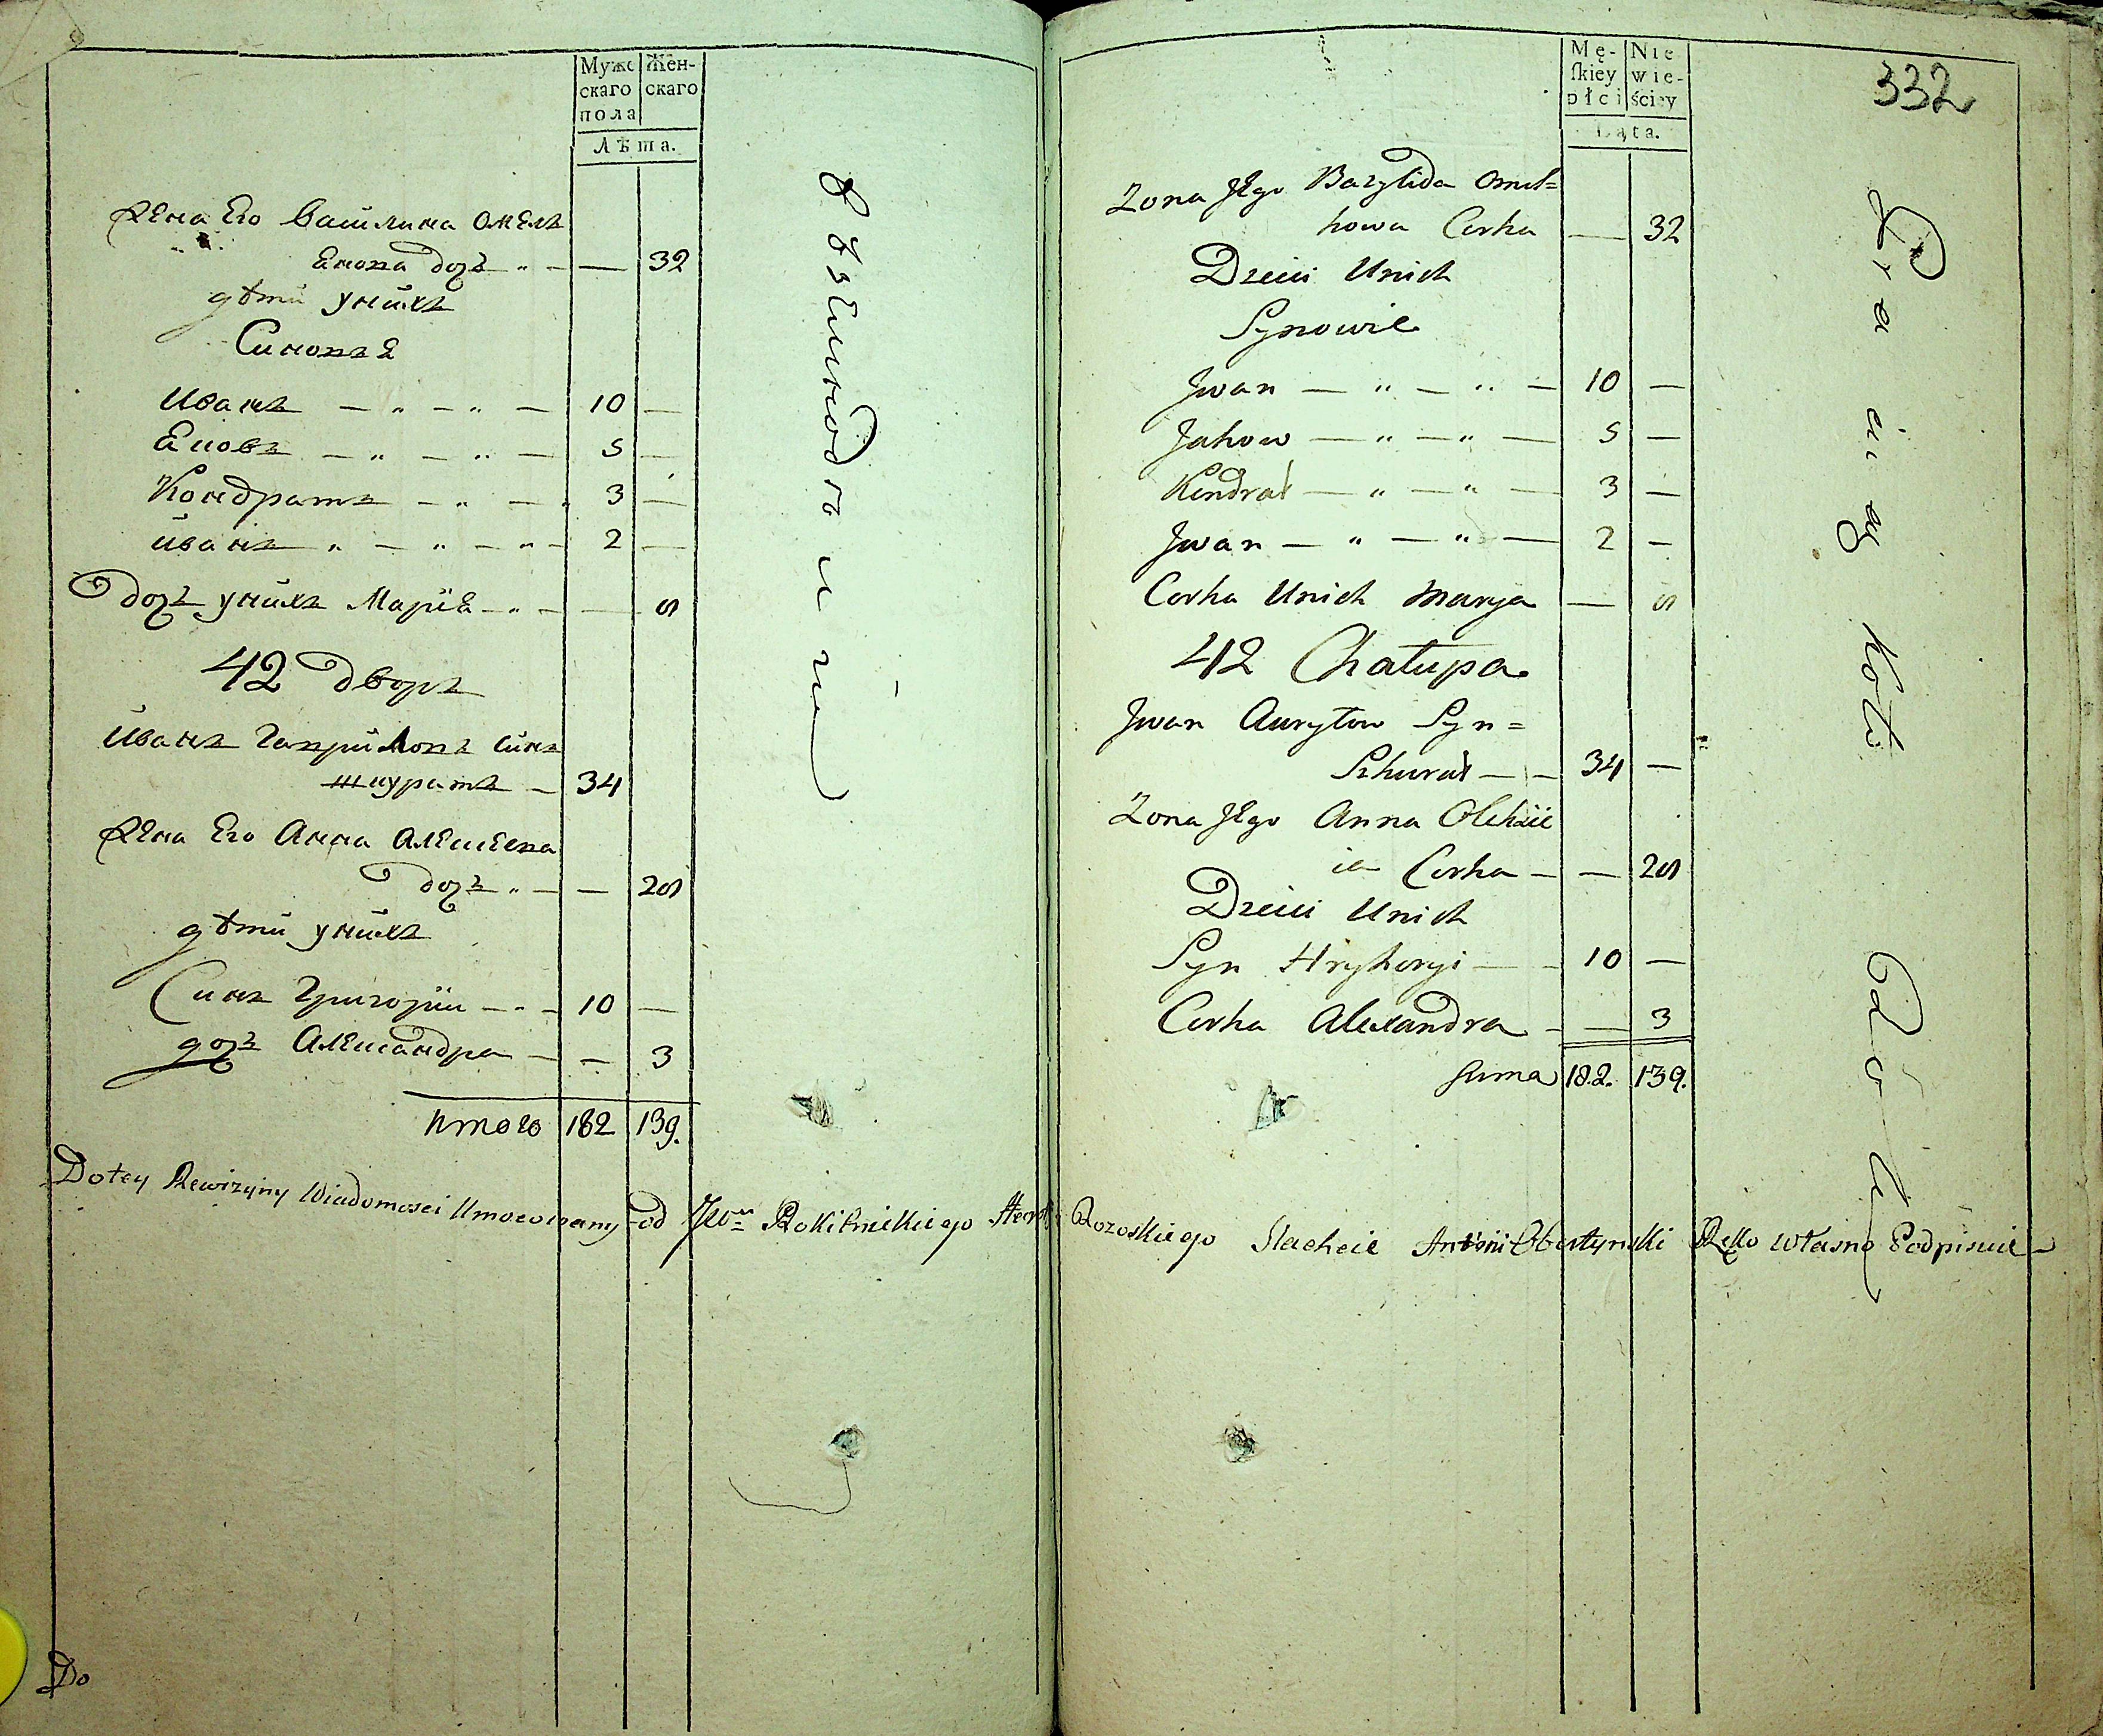 Мужс Жен-
скаго скаго
пола
Лѣта.
жена Его Василина Омелъ
Енова дочъ — 32
дѣти унихъ
Синовъя
Иванъ — 10 —
Яковъ — 5 —
Кондратъ — 3 —
Иванъ — 2 —
дочъ унихъ Марія — 5
42 дворъ
Иванъ Гавриловъ синъ
Шкуратъ — 34
жена Его Анна Алексеева
дочъ — 25
дѣти унихъ
Синъ Григорій — 10 —
дочъ Александра — 3
итого 182 139.
Mę- Nie
skiey wie-
płci ściey
Lata.
332
Zona Jego Bazylida Omel=
kowa Corka — 32
Dzieci Unich
Synowie
Jwan — 10 —
Jakow — 5 —
Kindrat — 3 —
Jwan — 2 —
Corka Unich Marya — 5
42 Chałupa
Jwan Awryłow Syn=
Szkurat — 34 —
Zona Jego Anna Olexie
ia Corka — 25
Dzieci Unich
Syn Hryhoryi — 10 —
Corka Alexandra — 3
Suma 182. 139.
Dotey Rewizyiny Wiadomosci Umocowany od Rokitnickiego Rozoskiego Slachcic Antoni Obertynski Ręko własno Podpisuie
Do